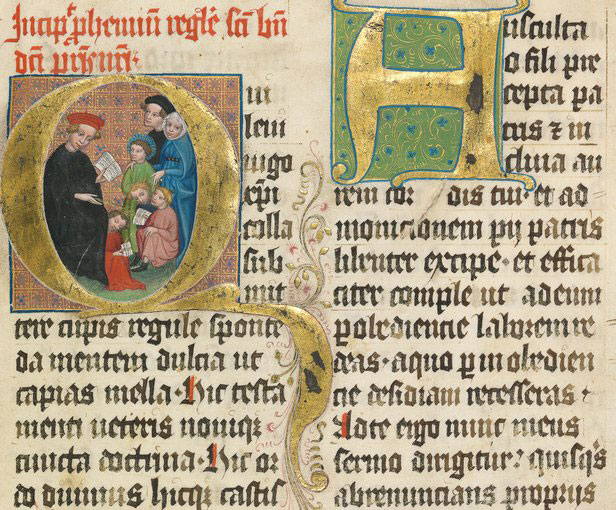 Incip̄ ꝓhemiū regle sc̄i bn̄
dc̄i pr̄is nr̄i·
Qui
leui
iugo
xp̄i
colla
sub
mit
tere cupis regule sponte
da mentem dulcia ut
capias mella· Hic testa
menti ueteris nouiqꝫ
cuncta doctrina· Hic or
do diuinus hicqꝫ castis
Ausculta
o fili pre
cepta pa
tris ⁊ in
clina au
rem cor dis tui· et ad
monicionem pij patris
libenter excipe· et effica
citer comple ut ad eum
ꝑ obediencie laborem re
deas· a quo ꝑ inobedien
cie desidiam recesseras·
Adte ergo nunc meus
sermo dirigitur? quisqˢ
abrenuncians proprijs